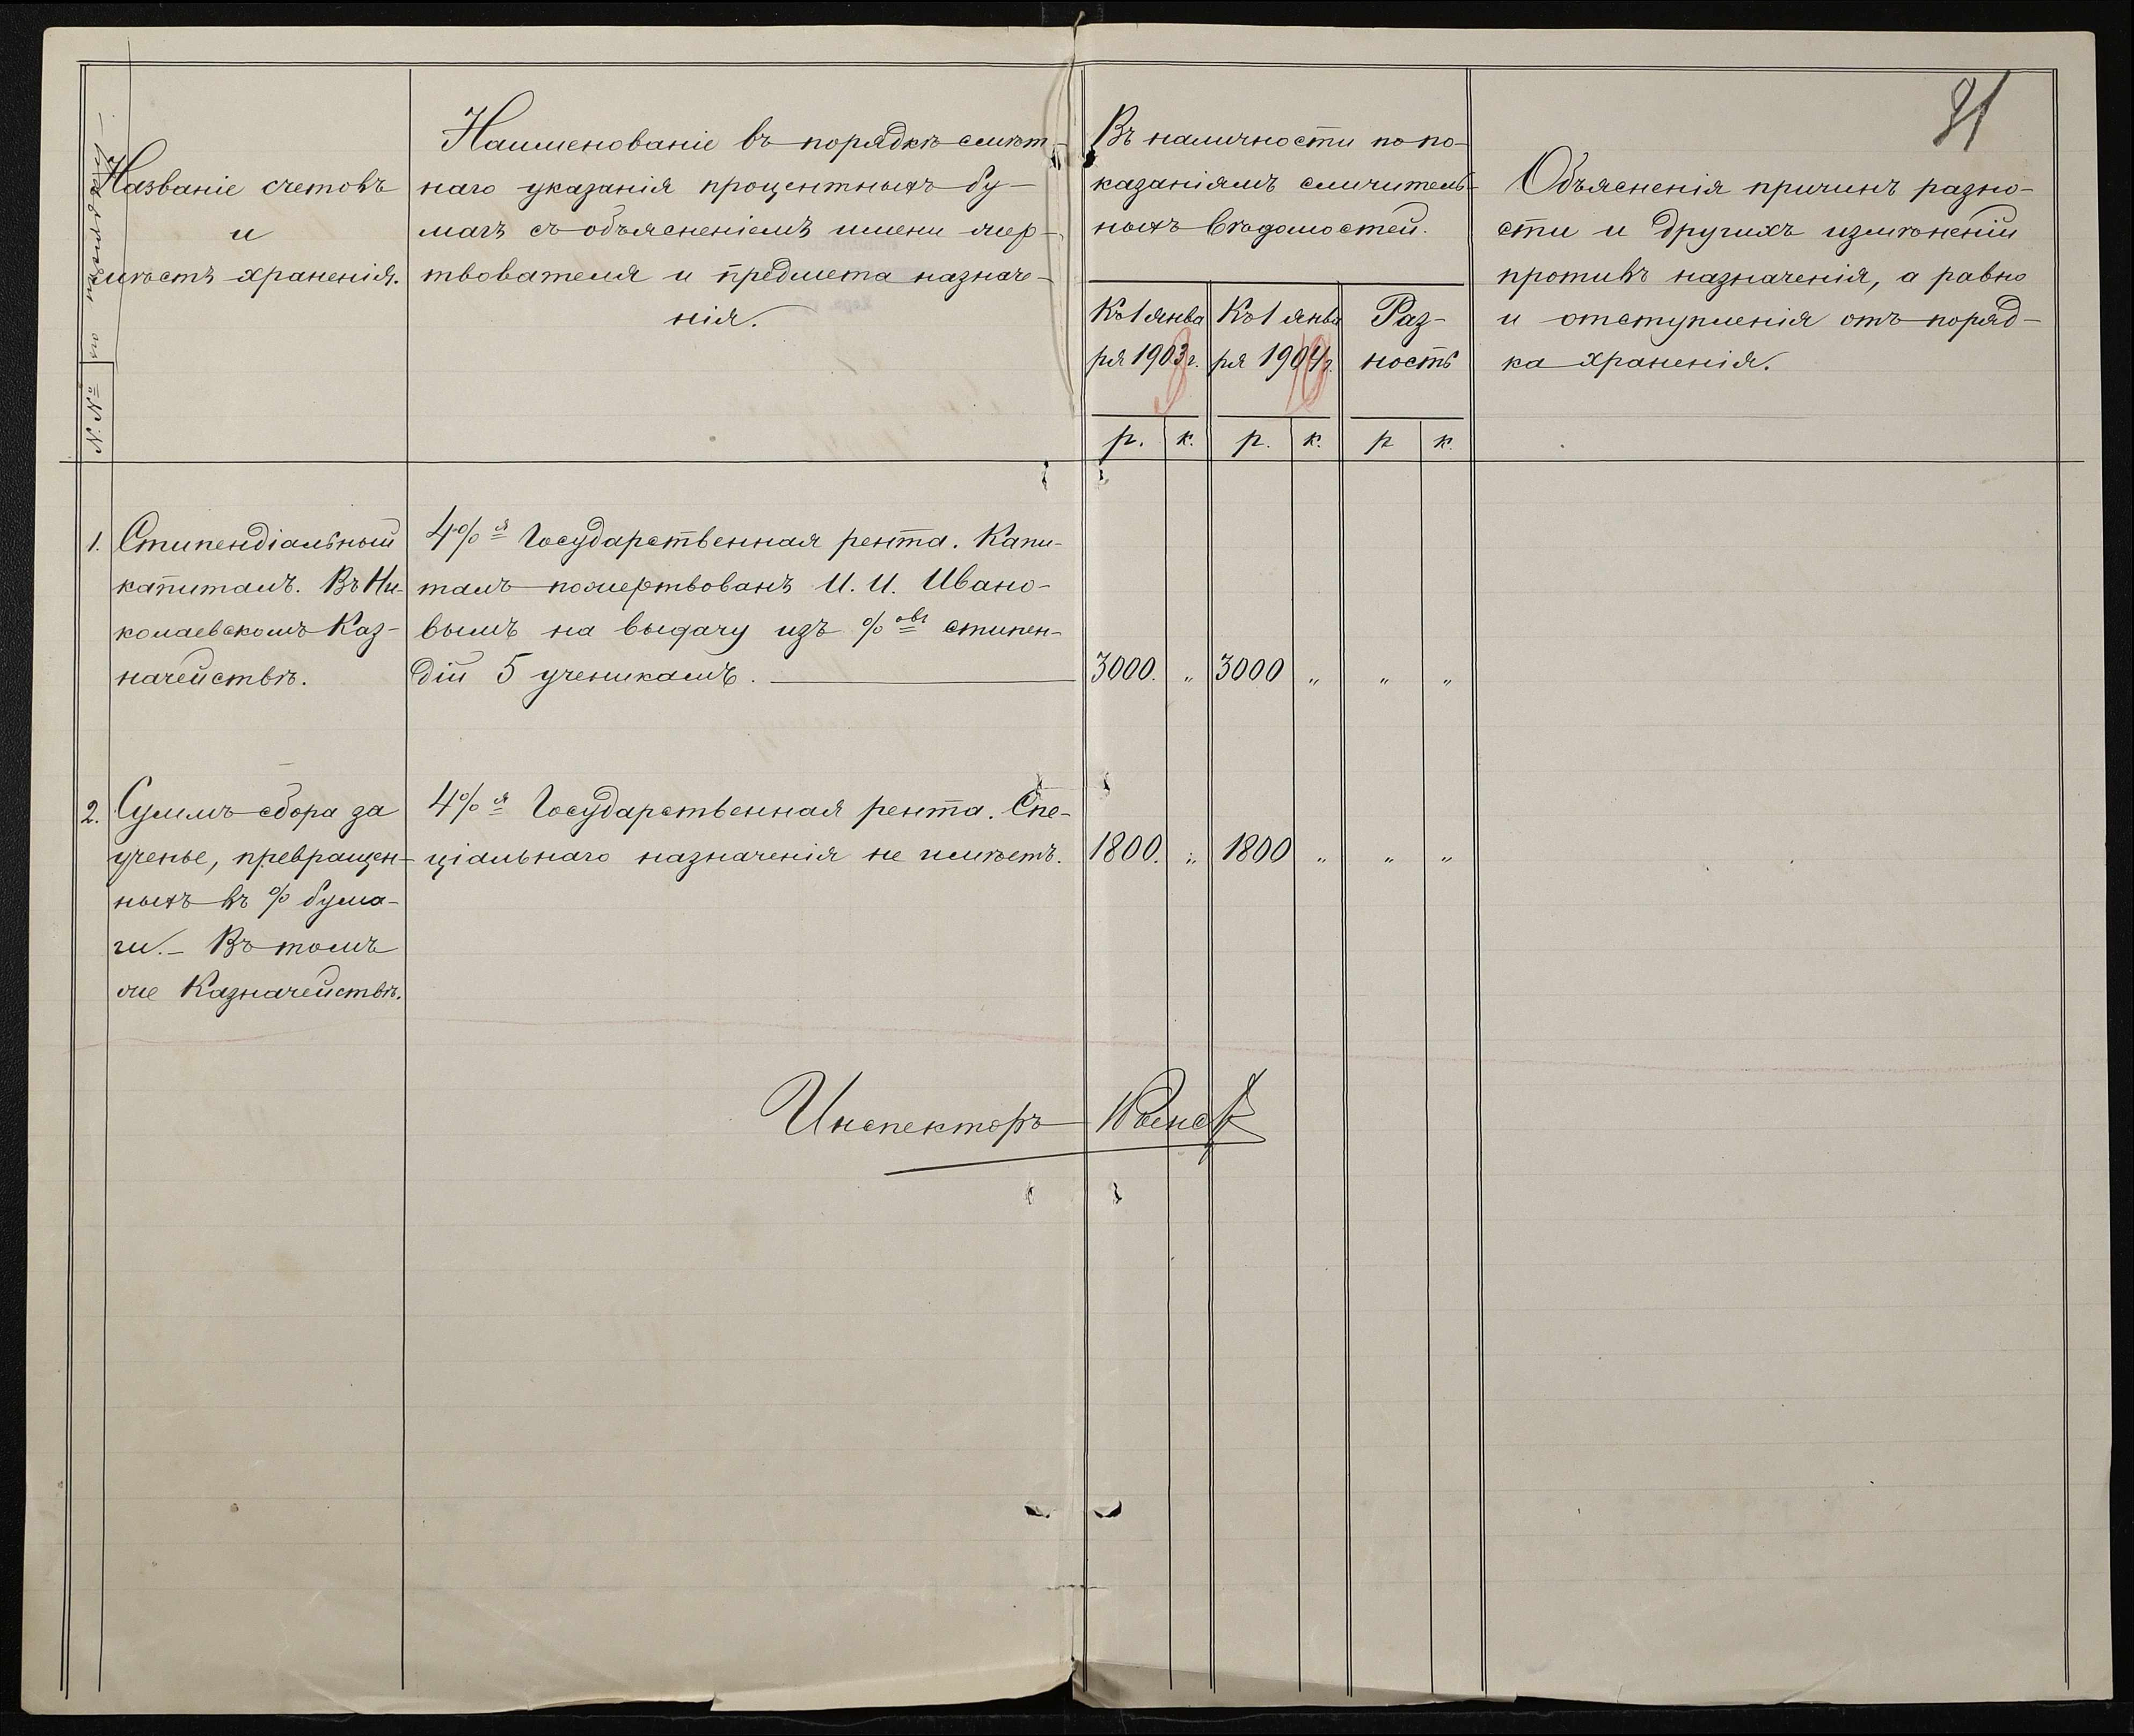 21
№.№ по порядку.
Названіе счетовъ
и
мѣстъ храненія.
Наименованіе въ порядкѣ смѣт-
наго указанія процентныхъ бу-
магъ съ объясненіемъ имени жер-
твователя и предмета назначе-
нія.
Въ наличности по по-
казаніямъ сличитель-
ныхъ вѣдомостей.
Къ 1 янва
ря 1903 г.
Къ 1 янва
ря 1904 г.
Раз-
ность
р. к. р. к. р к.
Объясненія причинъ разно-
сти и другихъ измѣненій
противъ назначенія, а равно
и отступленія отъ поряд-
ка храненія.
1. Стипендіальный
капиталъ. Въ Ни-
колаевскомъ Каз-
начействѣ.
4% я Государственная рента. Капи-
талъ пожертвованъ И. И. Ивано-
вымъ на выдачу изъ % овъ стипен-
дій 5 ученикамъ.
3000. „ 3000 „ „ „
2. Суммъ сбора за
ученье, превращен-
ныхъ въ % бума-
ги. – Въ томъ
же Казначействѣ.
4% я Государственная рента. Спе-
ціальнаго назначенія не имѣетъ.
1800. „ 1800 „ „ „
Инспекторъ